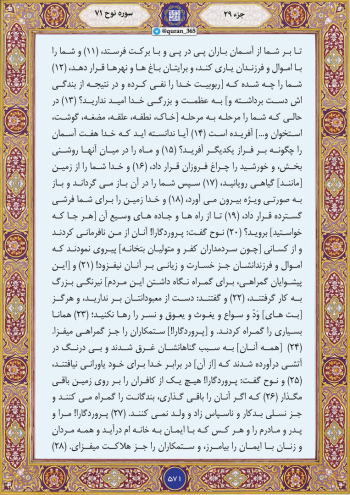 جزء ۲۹
سوره نوح ۷۱
@quran_365
تا بر شما از آسمان باران پی در پی و با برکت فرستد، (۱۱) و شما را
با اموال و فرزندان یاری کند، و برایتان باغ ها و نهرها قرار دهد، (۱۲)
شما را چه شده که [ربوبیت خدا را نفی کرده و در نتیجه از بندگی
اش دست برداشته و] به عظمت و بزرگی خدا امید ندارید؟ (۱۳) در
حالی که شما را مرحله به مرحله [خاک، نطفه، علقه، مضغه، گوشت،
استخوان و...] آفریده است (۱۴) آیا ندانسته اید که خدا هفت آسمان
را چگونه بر فراز یکدیگر آفرید؟ (۱۵) و ماه را در میان آنها روشنی
بخش، و خورشید را چراغ فروزان قرار داد، (۱۶) و خدا شما را از زمین
[مانند] گیاهی رویانید، (۱۷) سپس شما را در آن باز می گرداند و باز
به صورتی ویژه بیرون می آورد، (۱۸) و خدا زمین را برای شما فرشی
گسترده قرار داد، (۱۹) تا از راه ها و جاده های وسیع آن [هر جا که
خواستید] بروید؟ (۲۰) نوح گفت: پروردگارا! آنان از من نافرمانی کردند
و از کسانی [چون سردمداران کفر و متولیان بتخانه] پیروی نمودند که
اموال و فرزندانشان جز خسارت و زیانی بر آنان نیفزود! (۲۱) و [این
پیشوایان گمراهی، برای گمراه نگاه داشتن این مردم] نیرنگی بزرگ
به کار گرفتند، (۲۲) و گفتند: دست از معبودانتان بر ندارید، و هرگز
[بت های] وَدّ و سواع و یغوث و یعوق و نسر را رها نکنید؛ (۲۳) همانا
بسیاری را گمراه کردند. و [پروردگارا!] ستمکاران را جز گمراهی میفزا.
(۲۴) [همه آنان] به سبب گناهانشان غرق شدند و بی درنگ در
آتشی درآورده شدند که [از آن] در برابر خدا برای خود یاورانی نیافتند،
(۲۵) و نوح گفت: پروردگارا! هیچ یک از کافران را بر روی زمین باقی
مگذار (۲۶) که اگر آنان را باقی گذاری، بندگانت را گمراه می کنند و
جز نسلی بدکار و ناسپاس زاد و ولد نمی کنند. (۲۷) پروردگارا! مرا و
پدر و مادرم را و هر کس که با ایمان به خانه ام درآید و همه مردان
و زنان با ایمان را بیامرز، و ستمکاران را جز هلاکت میفزای. (۲۸)
۵۷۱